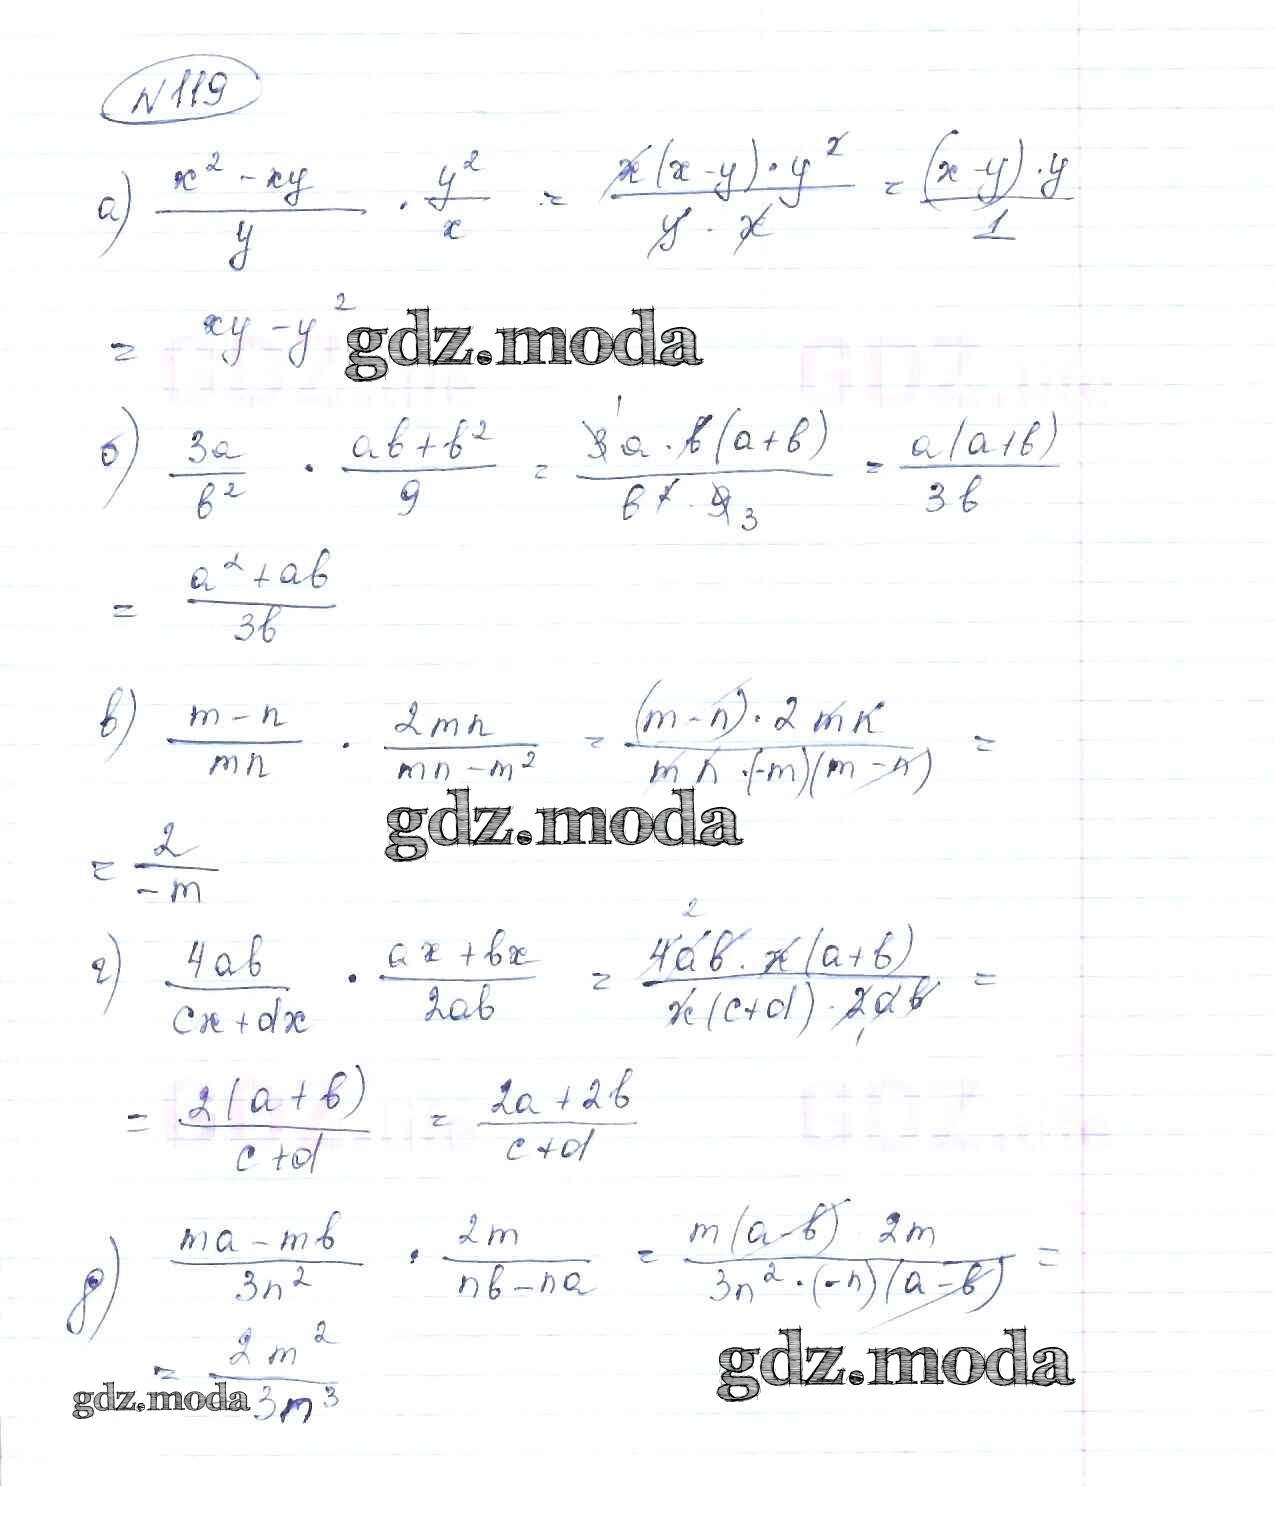 N119
а) (x² - xy)/y · y²/x = (x(x-y)·y²)/(y·x) = ((x-y)·y)/1
= xy - y² gdz.moda
б) 3a/b² · (ab+b²)/9 = (3a·b(a+b))/(b²·9) 1 3 = (a(a+b))/(3b)
= (a²+ab)/(3b)
в) (m-n)/(mn) · (2mn)/(mn-m²) = ((m-n)·2mn)/(mn·(-m)(m-n)) =
gdz.moda
= 2/(-m)
г) (4ab)/(cx+dx) · (ax+bx)/(2ab) = (4ab·x(a+b))/(x(c+d)·2ab) 2 1 =
= (2(a+b))/(c+d) = (2a+2b)/(c+d)
д) (ma-mb)/(3n²) · (2m)/(nb-na) = (m(a-b) 2m)/(3n²·(-n)(a-b)) =
gdz.moda
= (2m²)/(3n³)
gdz.moda